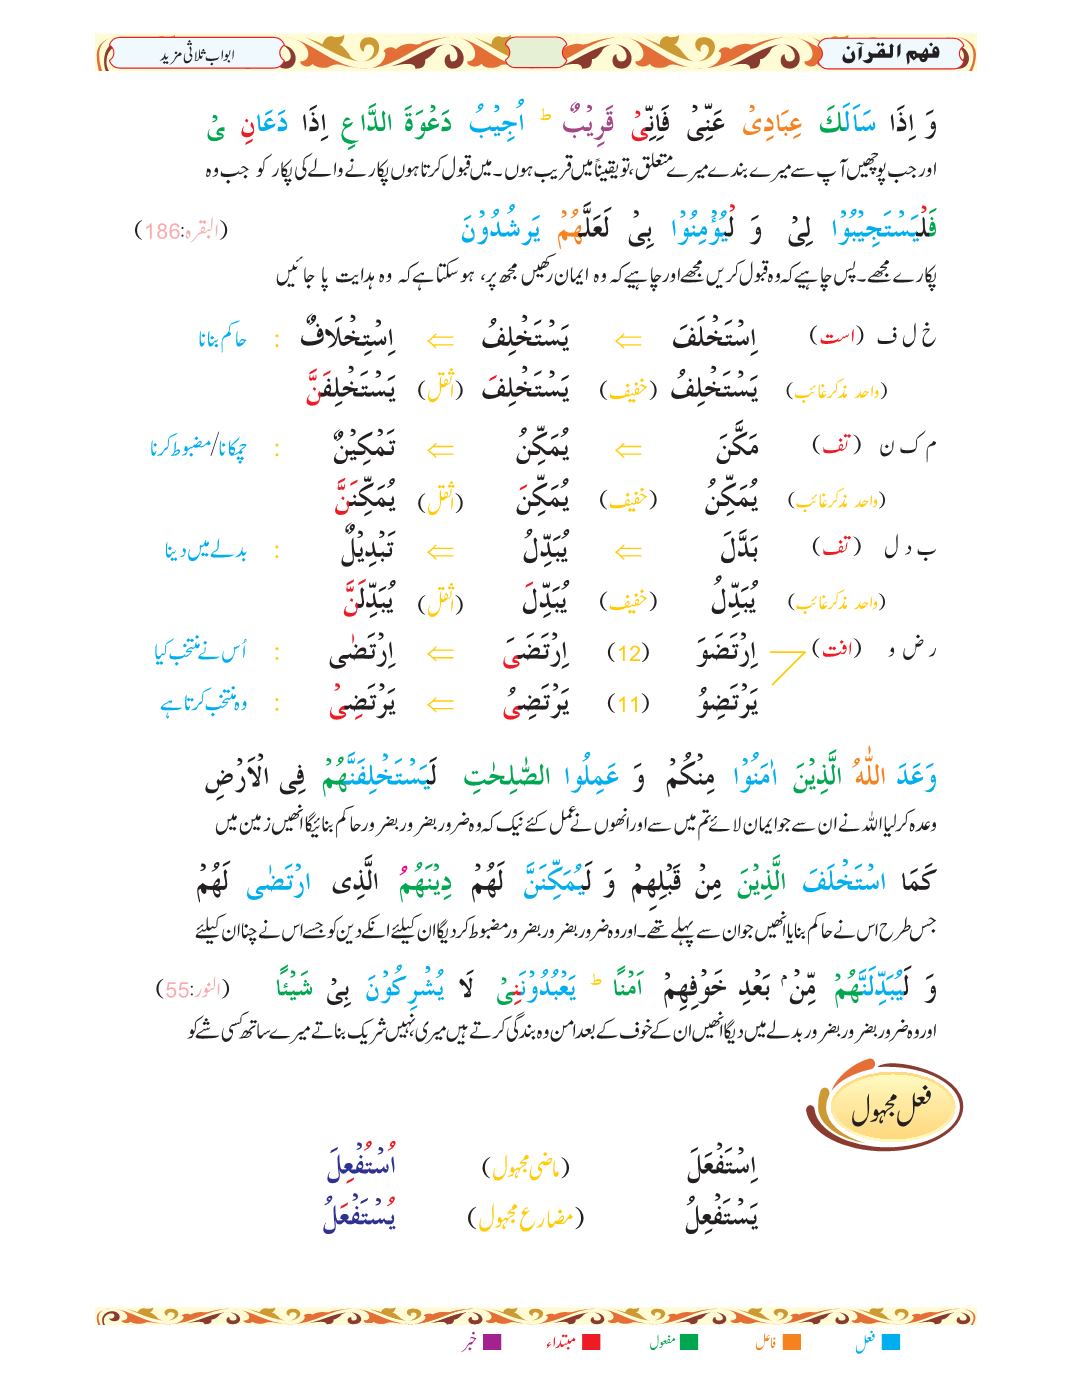 فہم القرآن
ابواب ثلاثی مزید
وَ اِذَا سَاَلَكَ عِبَادِیْ عَنِّیْ فَاِنِّیْ قَرِیْبٌ ؕ اُجِیْبُ دَعْوَةَ الدَّاعِ اِذَا دَعَانِ یْ
اور جب پوچھیں آپ سے میرے بندے میرے متعلق، تو یقیناً میں قریب ہوں۔ میں قبول کرتا ہوں پکارنے والے کی پکار کو جب وہ
فَلْیَسْتَجِیْبُوْا لِیْ وَ لْیُؤْمِنُوْا بِیْ لَعَلَّهُمْ یَرْشُدُوْنَ (البقرہ:186)
پکارے مجھے۔ پس چاہیے کہ وہ قبول کریں مجھے اور چاہیے کہ وہ ایمان رکھیں مجھ پر، ہو سکتا ہے کہ وہ ہدایت پا جائیں
خ ل ف (است) اِسْتَخْلَفَ ⇐ یَسْتَخْلِفُ ⇐ اِسْتِخْلَافٌ : حاکم بنانا
(واحد مذکر غائب) یَسْتَخْلِفُ (خفیف) یَسْتَخْلِفَ (اثقل) یَسْتَخْلِفَنَّ
م ک ن (تف) مَكَّنَ ⇐ یُمَكِّنُ ⇐ تَمْكِیْنٌ : جمکانا/مضبوط کرنا
(واحد مذکر غائب) یُمَكِّنُ (خفیف) یُمَكِّنَ (اثقل) یُمَكِّنَنَّ
ب د ل (تف) بَدَّلَ ⇐ یُبَدِّلُ ⇐ تَبْدِیْلٌ : بدلے میں دینا
(واحد مذکر غائب) یُبَدِّلُ (خفیف) یُبَدِّلَ (اثقل) یُبَدِّلَنَّ
ر ض و (افت) اِرْتَضَوَ (12) اِرْتَضَیَ ⇐ اِرْتَضٰی : اُس نے منتخب کیا
یَرْتَضِوُ (11) یَرْتَضِیُ ⇐ یَرْتَضِیْ : وہ منتخب کرتا ہے
وَعَدَ اللّٰهُ الَّذِیْنَ اٰمَنُوْا مِنْكُمْ وَ عَمِلُوا الصّٰلِحٰتِ لَیَسْتَخْلِفَنَّهُمْ فِی الْاَرْضِ
وعدہ کر لیا اللہ نے ان سے جو ایمان لائے تم میں سے اور انھوں نے عمل کئے نیک کہ وہ ضرور بضرور بضرور حاکم بنائیگا انھیں زمین میں
كَمَا اسْتَخْلَفَ الَّذِیْنَ مِنْ قَبْلِهِمْ وَ لَیُمَكِّنَنَّ لَهُمْ دِیْنَهُمُ الَّذِی ارْتَضٰی لَهُمْ
جس طرح اس نے حاکم بنایا انھیں جو ان سے پہلے تھے۔ اور وہ ضرور بضرور بضرور مضبوط کر دیگا ان کیلئے انکے دین کو جسے اس نے چنا ان کیلئے
وَ لَیُبَدِّلَنَّهُمْ مِّنْۢ بَعْدِ خَوْفِهِمْ اَمْنًا ؕ یَعْبُدُوْنَنِیْ لَا یُشْرِكُوْنَ بِیْ شَیْـًٔا (النور:55)
اور وہ ضرور بضرور بضرور بدلے میں دیگا انھیں ان کے خوف کے بعد امن وہ بندگی کرتے ہیں میری، نہیں شریک بناتے میرے ساتھ کسی شے کو
فعل مجہول
اِسْتَفْعَلَ (ماضی مجہول) اُسْتُفْعِلَ
یَسْتَفْعِلُ (مضارع مجہول) یُسْتَفْعَلُ
فعل فاعل مفعول مبتداء خبر